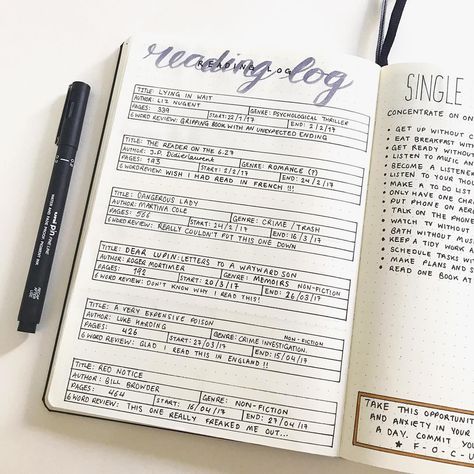 reading log
READING LOG
TITLE: LYING IN WAIT
AUTHOR: LIZ NUGENT GENRE: PSYCHOLOGICAL THRILLER
PAGES: 339 START: 22/1/17 END: 2/2/17
6 WORD REVIEW: GRIPPING BOOK WITH AN UNEXPECTED ENDING
TITLE: THE READER ON THE 6.27
AUTHOR: J.P. Didierlaurent GENRE: ROMANCE (?)
PAGES: 193 START: 2/2/17 END: 24/2/17
6 WORD REVIEW: WISH I HAD READ IN FRENCH !!!
TITLE: DANGEROUS LADY
AUTHOR: MARTINA COLE GENRE: CRIME / TRASH
PAGES: 556 START: 24/2/17 END: 16/3/17
6 WORD REVIEW: REALLY COULDN'T PUT THIS ONE DOWN
TITLE: DEAR LUPIN: LETTERS TO A WAYWARD SON
AUTHOR: ROGER MORTIMER GENRE: MEMOIRS NON-FICTION
PAGES: 192 START: 20/3/17 END: 26/03/17
6 WORD REVIEW: DON'T KNOW WHY I READ THIS!
TITLE: A VERY EXPENSIVE POISON
AUTHOR: LUKE HARDING GENRE: CRIME INVESTIGATION, NON-FICTION
PAGES: 426 START: 27/03/17 END: 15/04/17
6 WORD REVIEW: GLAD I READ THIS IN ENGLAND !!
TITLE: RED NOTICE
AUTHOR: BILL BROWDER GENRE: NON-FICTION
PAGES: 464 START: 16/04/17 END: 27/04/17
6 WORD REVIEW: THIS ONE REALLY FREAKED ME OUT...
SINGLE
CONCENTRATE ON ON
• GET UP WITHOUT C
• EAT BREAKFAST WIT
• GET READY WITHOUT
• LISTEN TO MUSIC AN
• BECOME A LISTENER
• LISTEN TO YOUR THO
• MAKE A TO DO LIST
• ONLY HAVE ONE
• PUT PHONE ON AER
• TALK ON THE PHON
• WATCH TV WITHOUT
• BATH WITHOUT MUS
• KEEP A TIDY WORK A
• SCHEDULE TASKS WIT
• MAKE PLANS AND S
• READ ONE BOOK AT
TAKE THIS OPPORTUNI
AND ANXIETY IN YOUR
A DAY. COMMIT YOU
★ F-O-C-
uni PIN FINE LINE